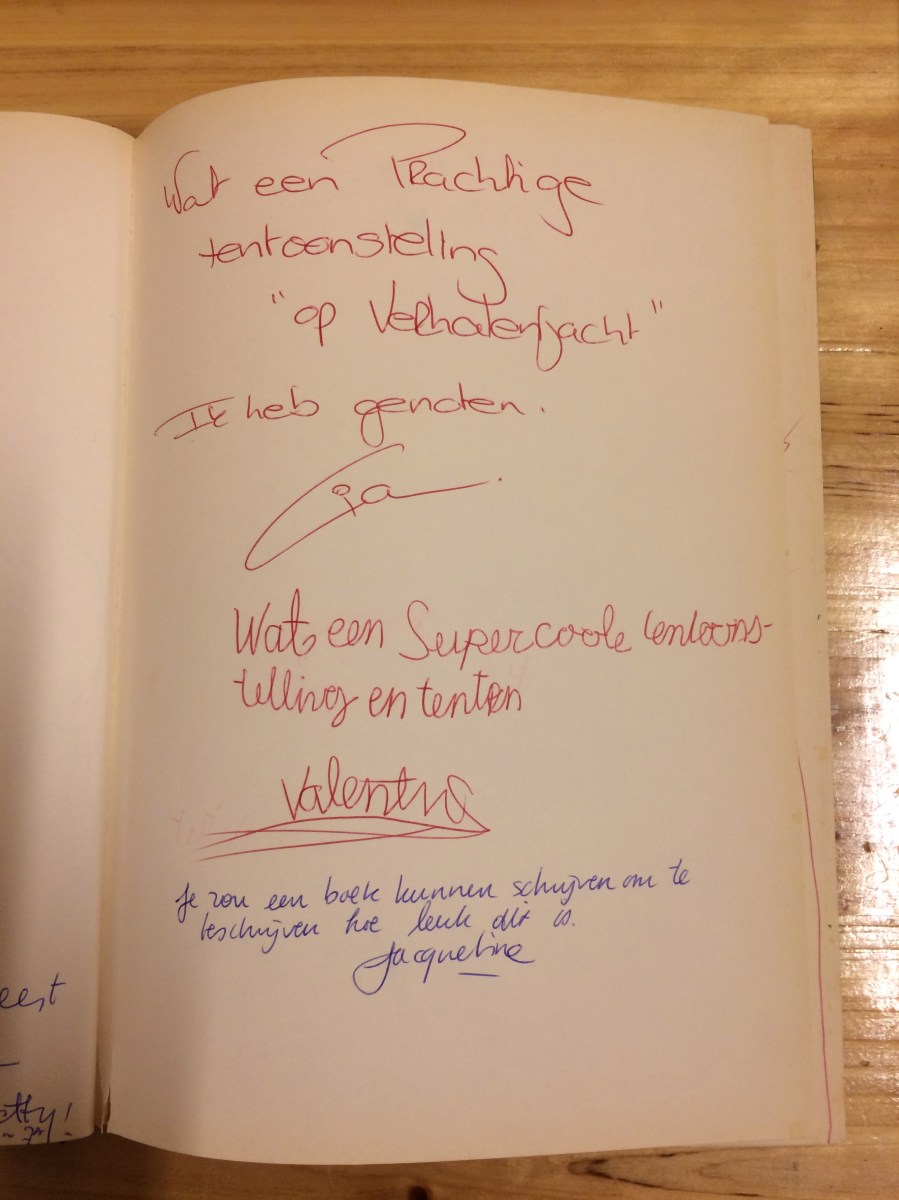 Wat een Prachtige
tentoonsteling
"op Verhalenjacht"
Ik heb genoten.
Cja
Wat een Supercoole tentoons-
telling en tenten
Valentva
Je zou een boek kunnen schrijven om te
beschrijven hoe leuk dit is.
Jacqueline
eest
etty!